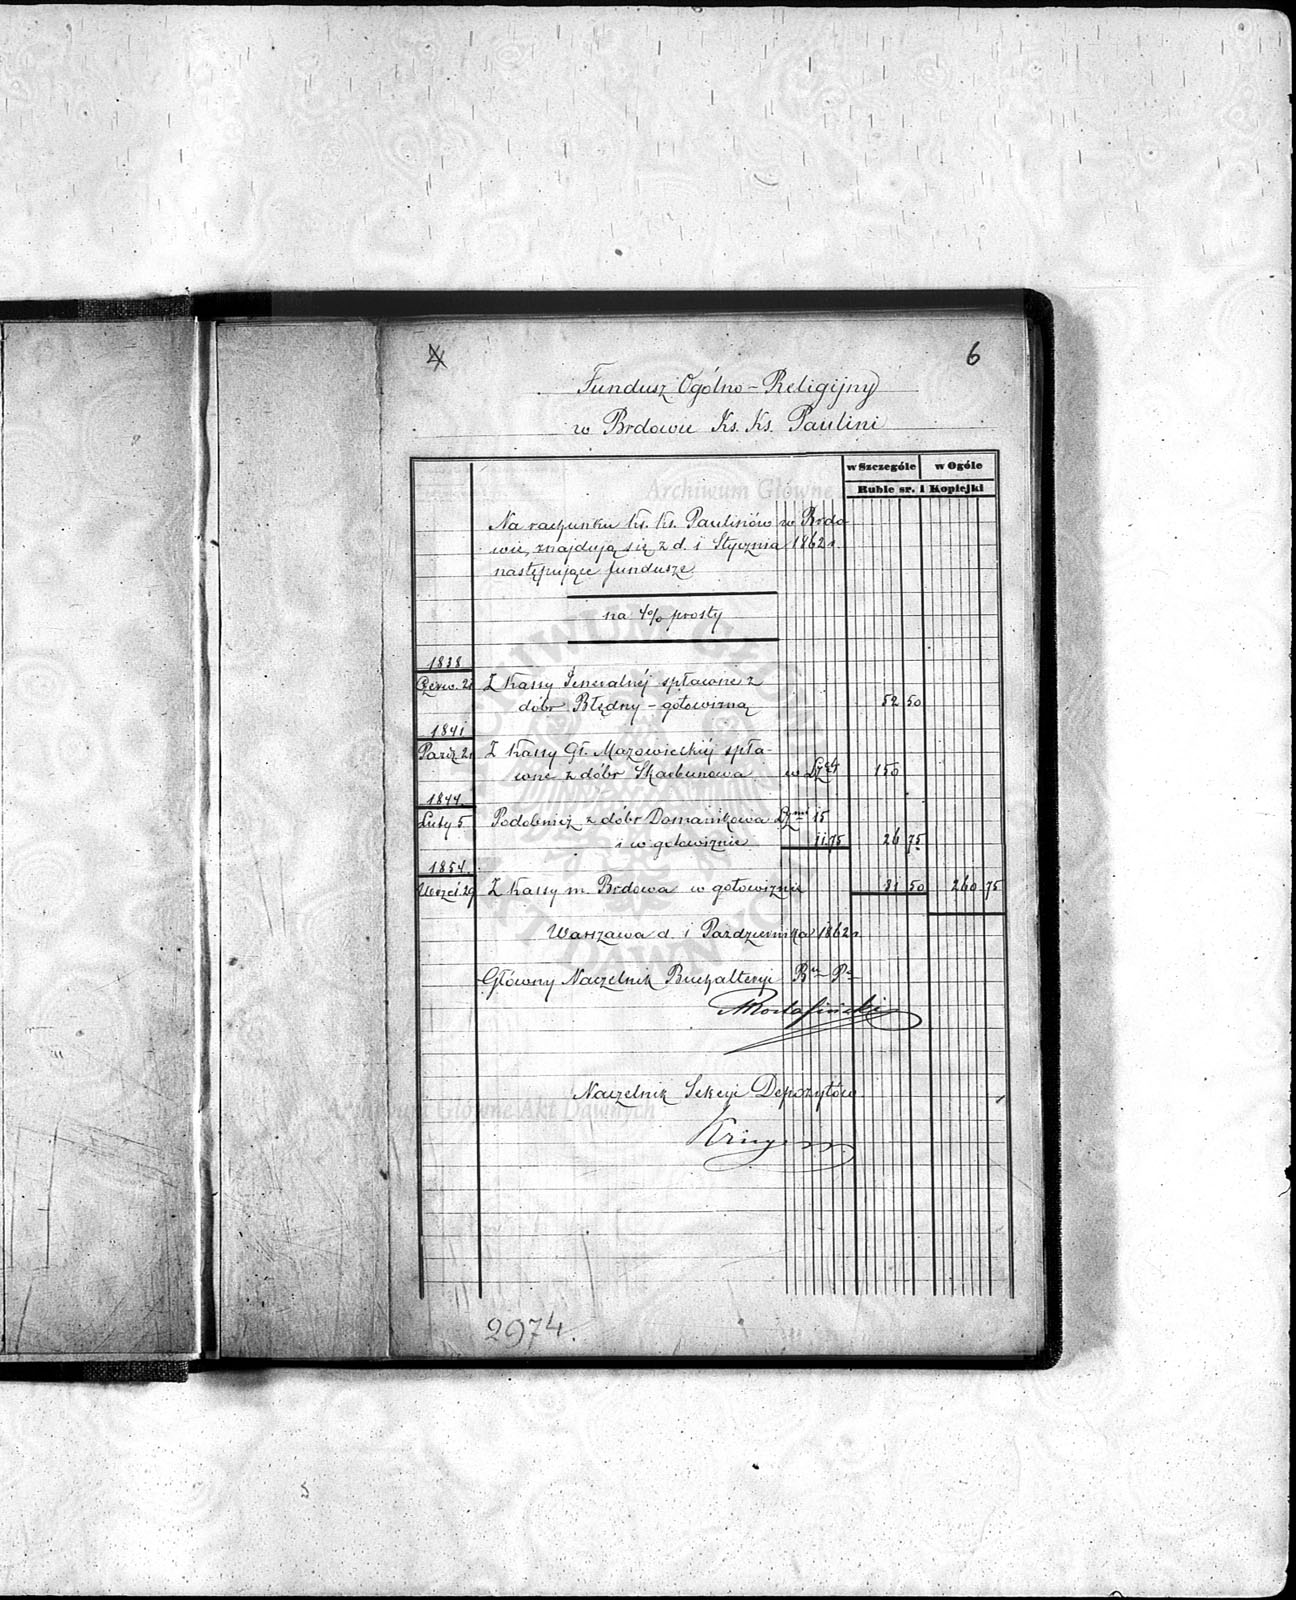 4
6
Fundusz Ogólno-Religijny
w Brdowie Ks. Ks. Paulini
w Szczególe w Ogóle
Ruble sr. i Kopiejki
Na rachunku Ks. Ks. Paulinów w Brdo
wie, znajdują się z d. 1 Stycznia 1862 r.
następujące fundusze
na 4% prosty
1838
Czerw. 21 Z Kassy Generalnéj spławne z
dóbr Błędny - gotowizną 52 50
1841
Paźdz. 21 Z Kassy Gł. Mazowieckiéj spła-
wne z dóbr Skarbunowa w 150
1844.
Luty 5. Podobnież z dóbr Domanikowa 15
i w gotowiźnie 11.75 26 75
1854.
Wrześ. 29 Z Kassy m. Brdowa w gotowiźnie 31 50 260 75
Warszawa d. 1 Października 1862 r
Główny Naczelnik Buchalteryi
Rostafiński
Naczelnik Sekcyi Depozytów
2974.
Archiwum Główne Akt Dawnych